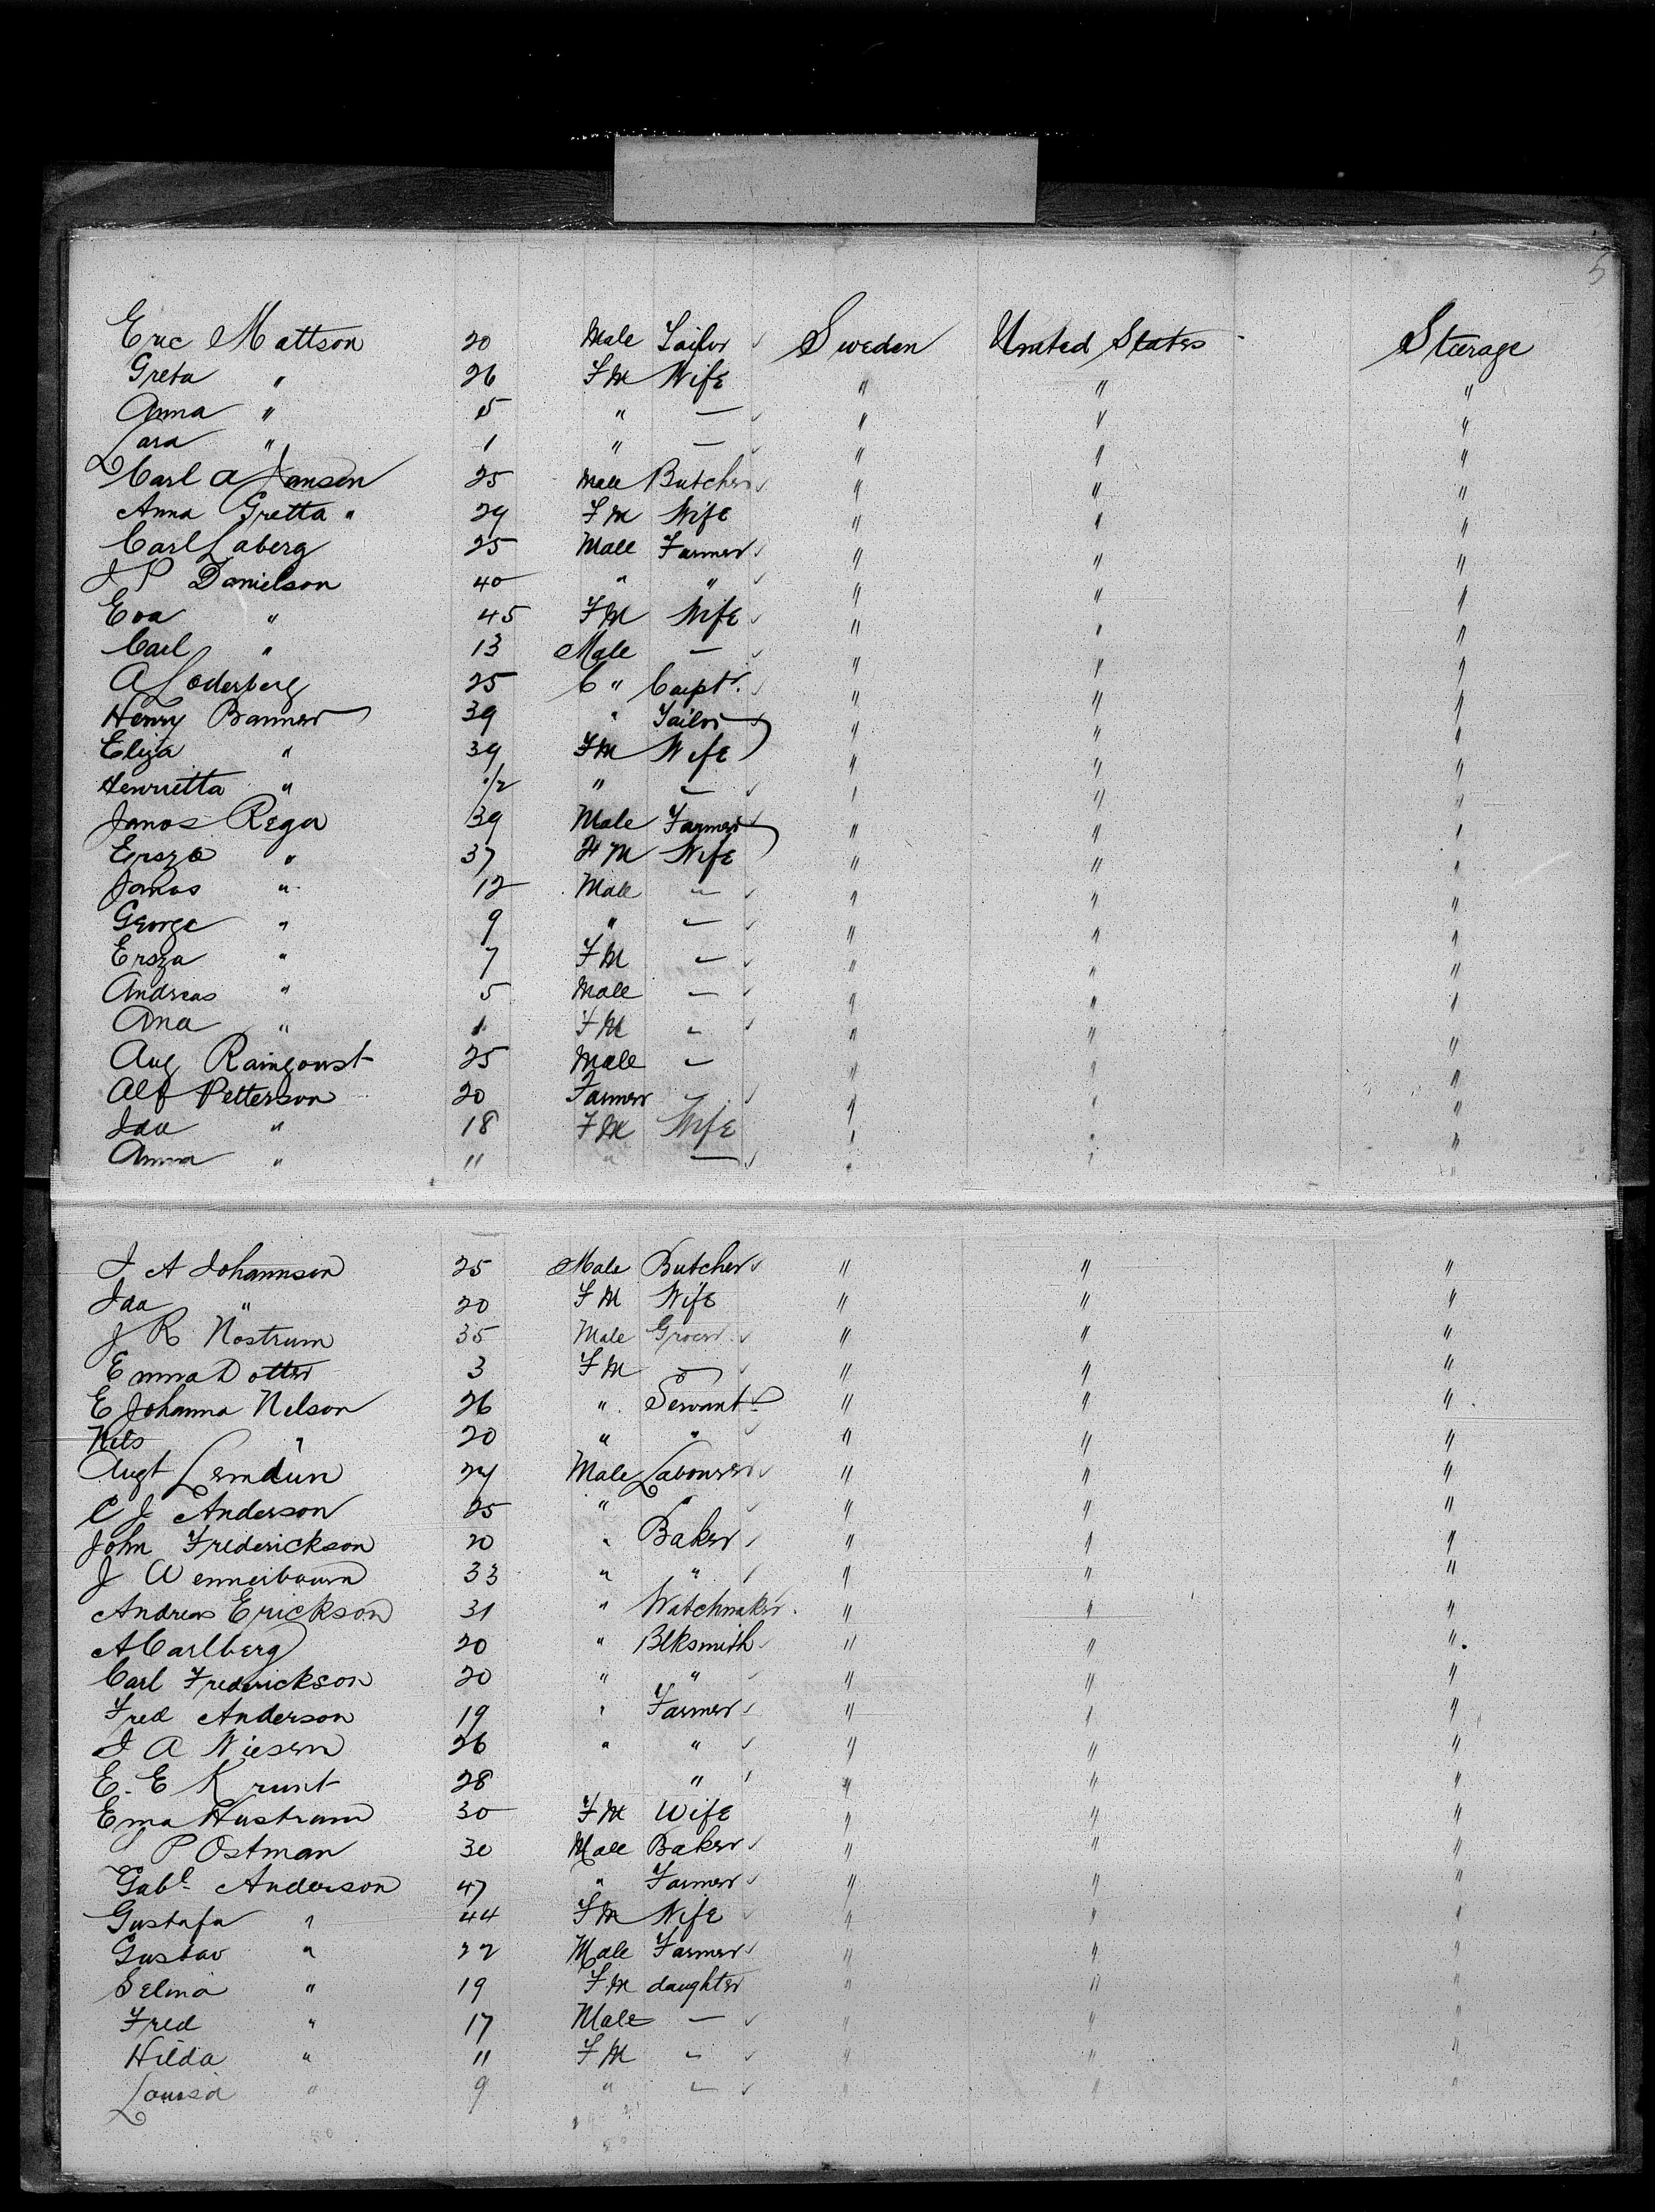 5
Eric Mattson 20 Male Tailor Sweden United States Steerage
Greta " 26 FM Wife " " "
Anna " 5 " — " " "
Lara " 1 " — " " "
Carl A Jansen 25 Male Butcher " " "
Anna Gretta " 29 FM Wife " " "
Carl Laberg 25 Male Farmer " " "
J P Danielson 40 " " " " "
Eva " 45 FM Wife " " "
Carl " 13 Male — " " "
A Soderberg 25 " Carptr. " " "
Henry Banner 39 " Tailor " " "
Eliza " 39 FM Wife " " "
Henrietta " " — " " "
Janos Rega 39 Male Farmer " " "
Ersza " 37 FM Wife " " "
Janos " 12 Male — " " "
George " 9 " — " " "
Ersza " 7 FM — " " "
Andreas " 5 Male — " " "
Ana " 1 FM — " " "
Aug 25 Male — " " "
Alf Petterson 20 Farmer — " " "
Ida " 18 FM Wife " " "
Anna " 11 " — " " "
J A Johannson 25 Male Butcher " " "
Ida " 20 FM Wife " " "
J R Nostrum 35 Male Grocer " " "
Emma Dotter 3 FM — " " "
E Johanna Nelson 26 " Servant " " "
Nels " 20 " " " " "
Augt Lemdun 24 Male Labourer " " "
C J Anderson 25 " " " " "
John Frederickson 20 " Baker " " "
J Wennerbourn 33 " " " " "
Andreas Erickson 31 " Watchmaker " " "
A Carlberg 20 " Blksmith " " "
Carl Frederickson 20 " " " " "
Fred Anderson 19 " Farmer " " "
J A Niesem 26 " " " " "
E. E Krunt 28 " " " "
Ema Hustrum 30 FM Wife " " "
P Ostman 30 Male Baker " " "
Gabl Anderson 47 " Farmer " " "
Gustafa " 44 FM Wife " " "
Gustav " 22 Male Farmer " " "
Selma " 19 FM daughter " " "
Fred " 17 Male — " " "
Hilda " 11 FM — " " "
Louisa " 9 " — " " "